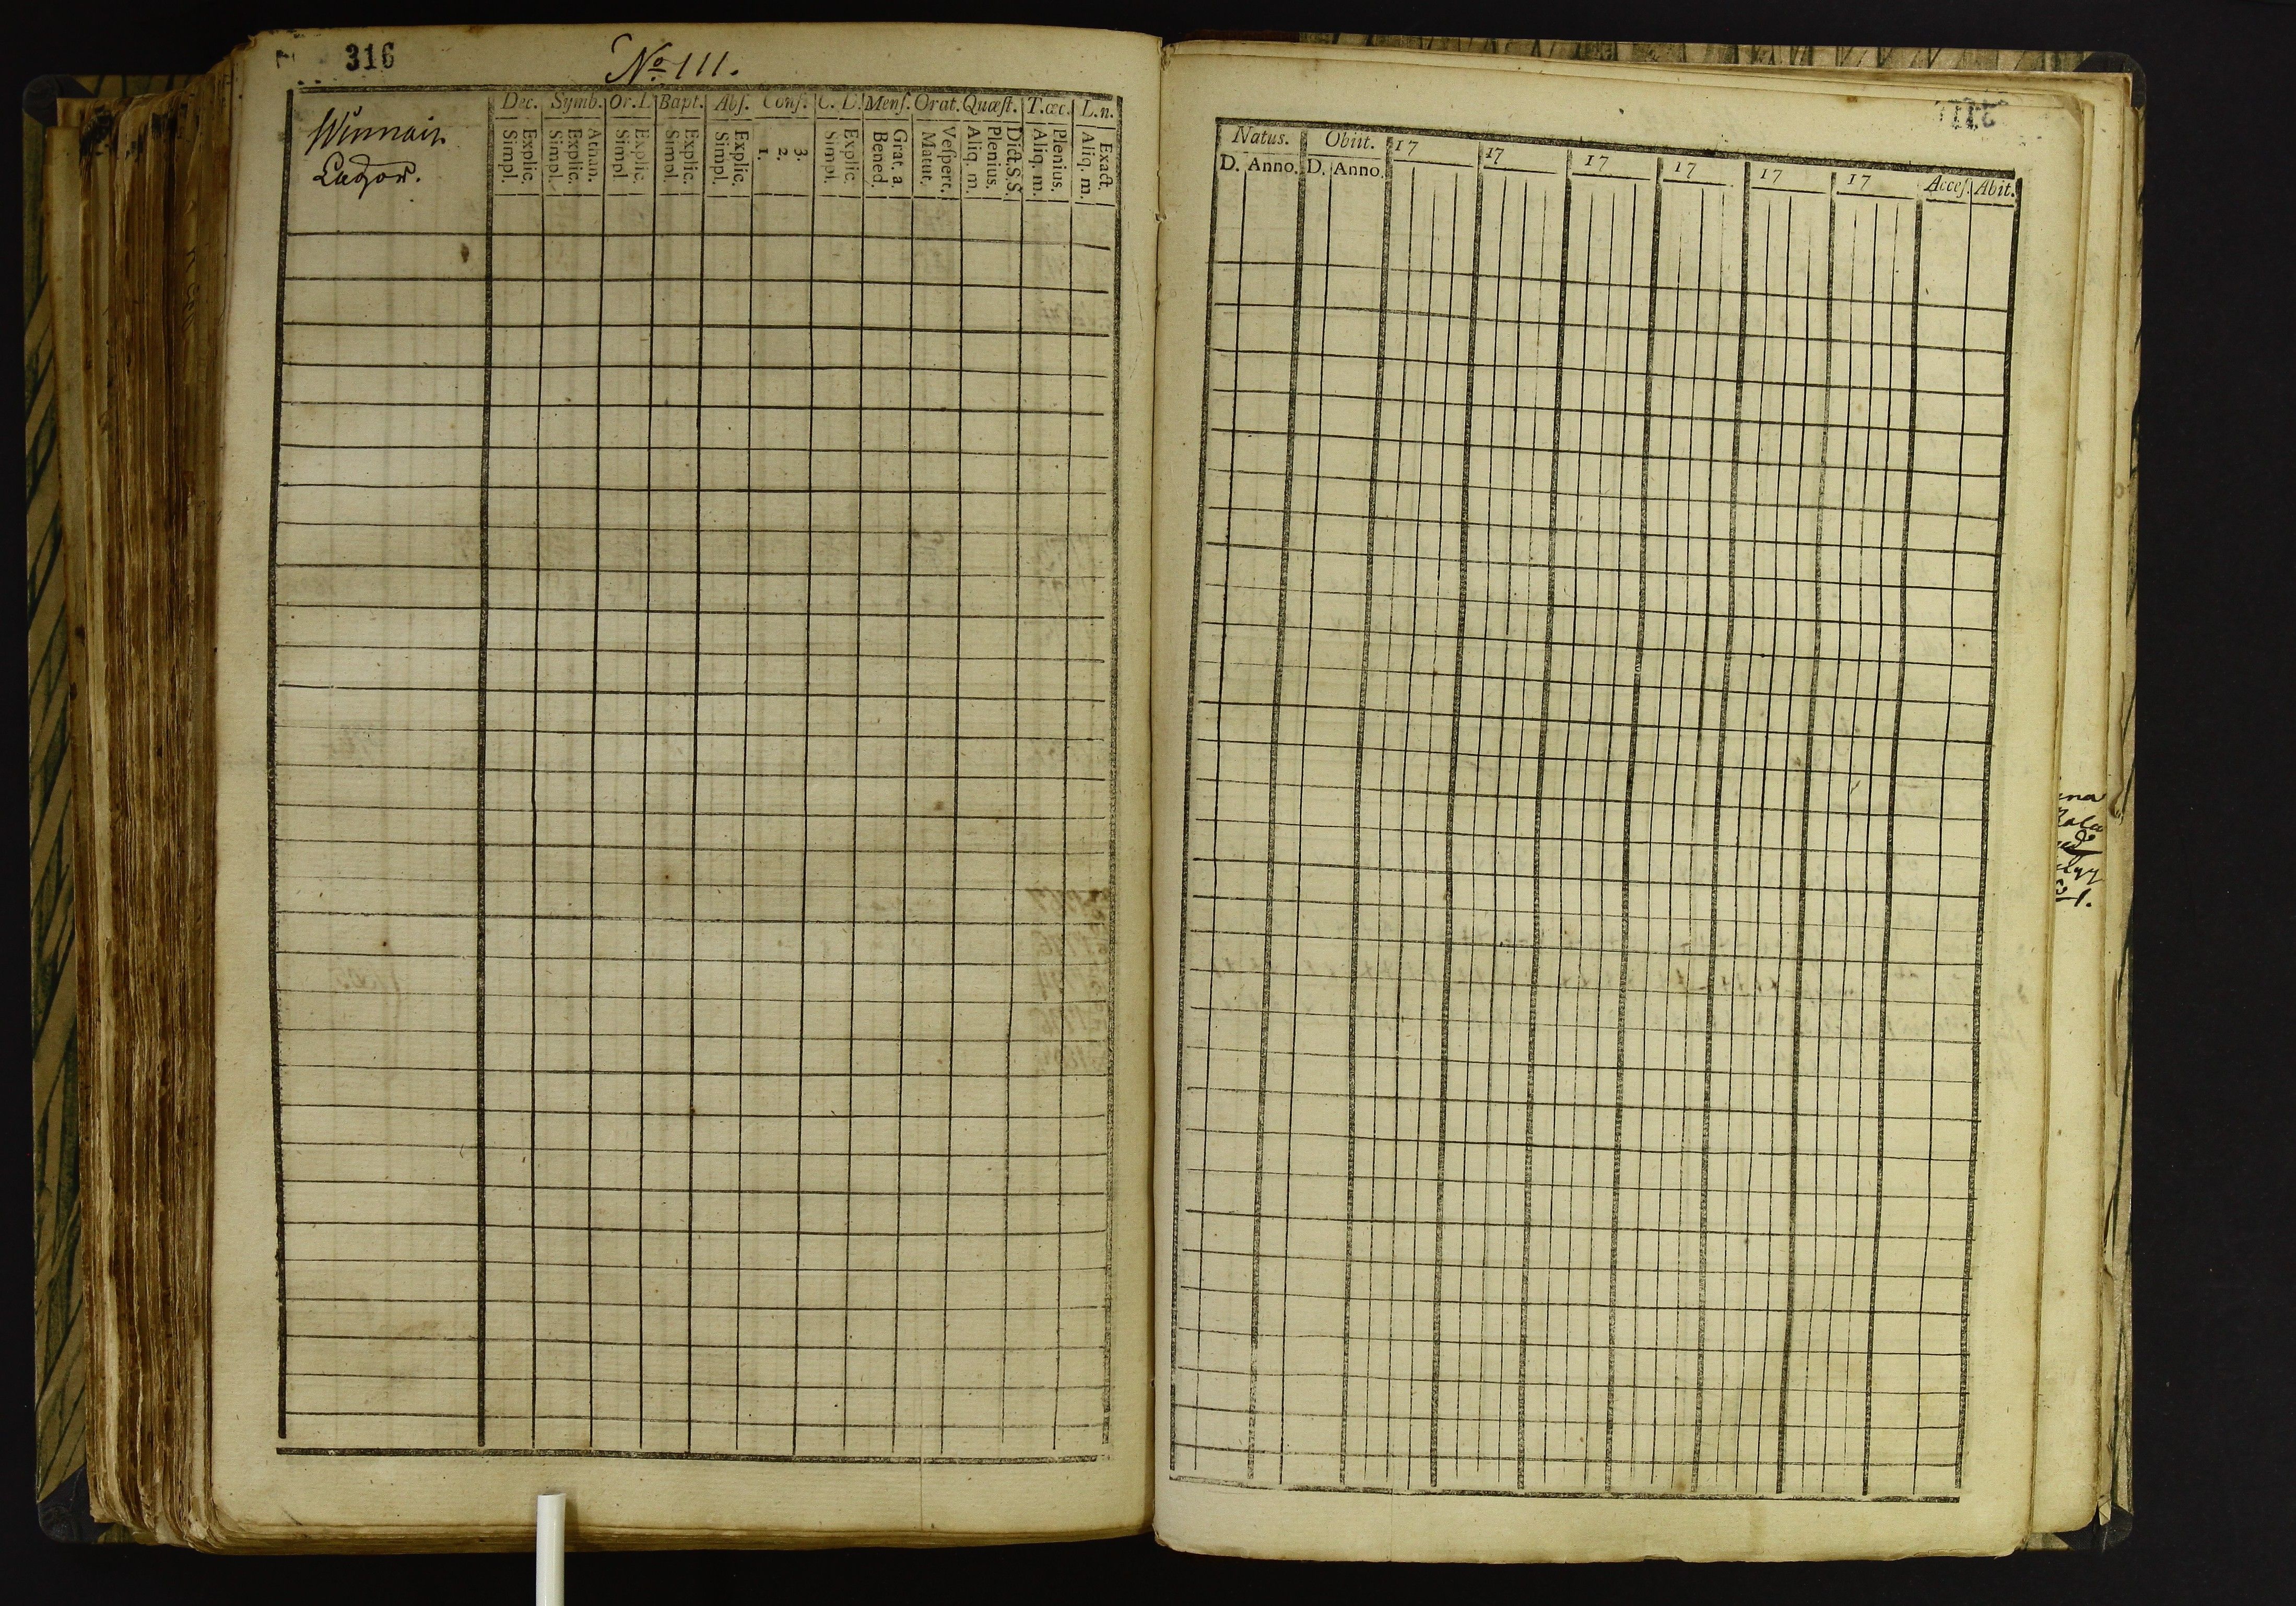 316
No 111.
Dec. Symb. Or. D Bapt. Abſ. Conf. C. D. Menſ. Orat. Quæſt. T. œc. L. n.
Simpl. Explic. Simpl. Explic. Athan. Simpl. Explic. Simpl. Explic. Simpl. Explic. 1. 2. 3. Simpl. Explic. Bened. Grat. a. Matut. Veſpert. Aliq. m. Plenius. Dict. S. S. Aliq. m. Plenius. Aliq. m. Exact.
Natus. Obiit. 17 17 17 17 17 17 Acceſ. Abit.
D. Anno. D. Anno.